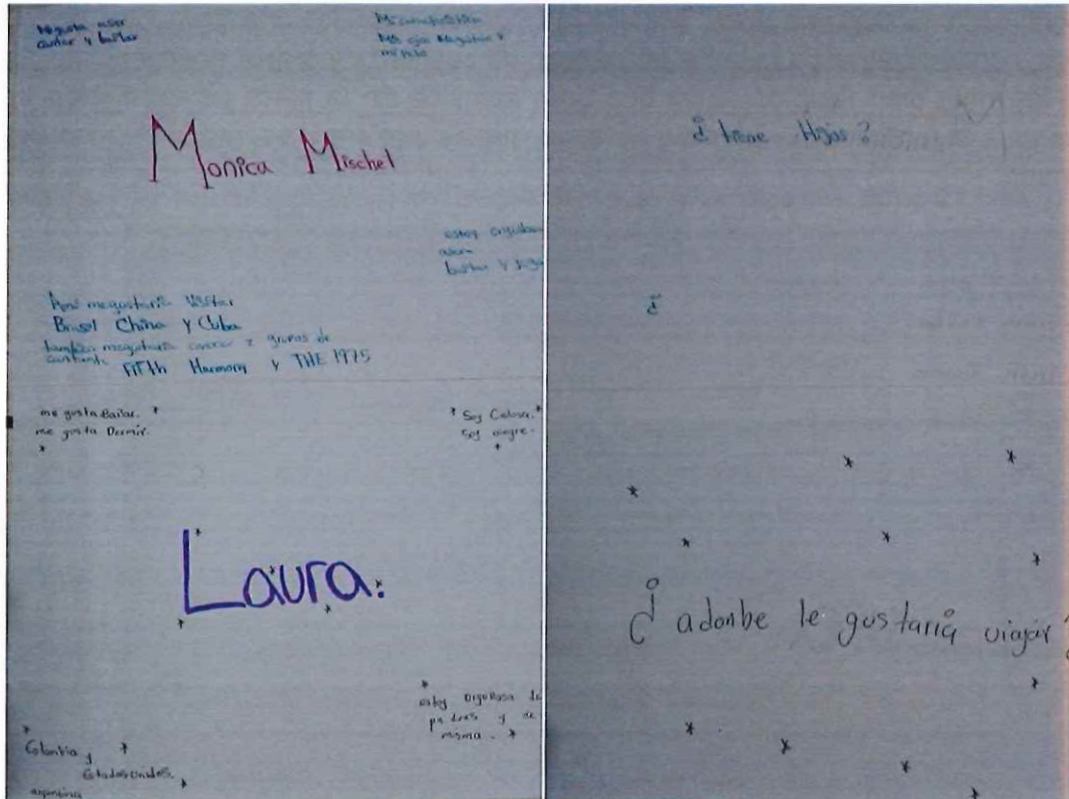 Me gusta aser
cantar y bailar
Mis ojos Me gustan y
mi pelo
Monica Mischel
estoy
bailar y
Ami me gustaria Visitar
Brasol China y Cuba
tambien megustaria conocer 2 grupos de
cantante FIFth Harmony y THE 1975
me gusta Bailar.
me gusta Dormir.
Soy Celosa.
Soy alegre.
Laura.
estoy Orgullosa de
padres y de
misma.
Colombia y
Estados Unidos.
argentina
¿tiene Hijos?
¿
¿adonbe le gustaria viajar?